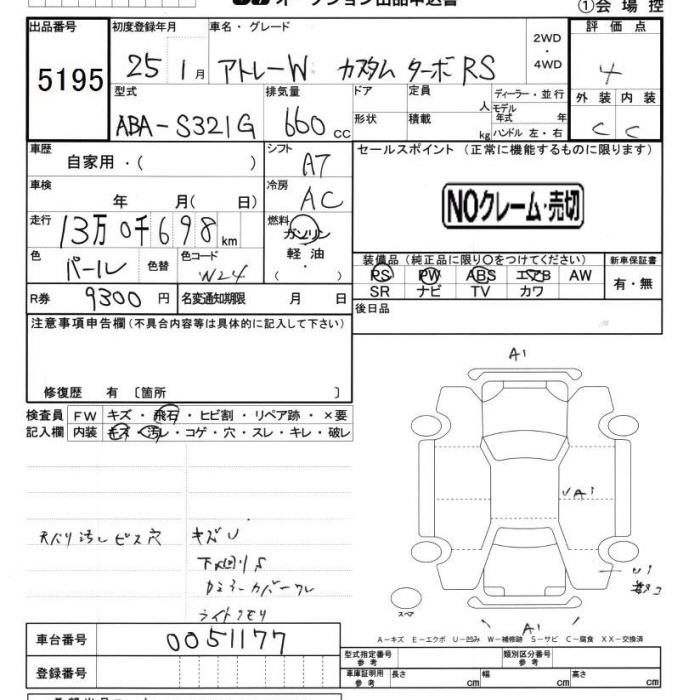 オークション出品申込書
①会場控
出品番号 初度登録年月 車名・グレード 2WD・4WD 評価点
5195 25 1月 アトレーW カスタム ターボ RS 4
型式 排気量 ドア 定員 人 ディーラー・並行 外装 内装
モデル年式 年
ABA-S321G 660cc 形状 積載 kg ハンドル 左・右 C C
車歴 自家用・( ) シフト A7 セールスポイント (正常に機能するものに限ります)
車検 年 月( 日) 冷房 AC
NOクレーム・売切
走行 13万0千698km 燃料 ガソリン
軽油
( )
色 パール 色替 色コード W24
装備品 (純正品に限り○をつけてください) 新車保証書
PS PW ABS エアB AW 有・無
SR ナビ TV カワ
R券 9300円 名変通知期限 月 日 後日品
注意事項申告欄 (不具合内容等は具体的に記入して下さい)
修復歴 有 〔箇所 〕
検査員 FW キズ・飛石・ヒビ割・リペア跡・×要
記入欄 内装 キズ・汚レ・コゲ・穴・スレ・キレ・破レ
A1
UA1
天バリ汚レ ビス穴 キズU
下回りS
カバーワレ
ライトクモリ
U1
スペア
A1
A-キズ E-エクボ U-凹み W-補修跡 S-サビ C-腐食 XX-交換済
車台番号 0051177
型式指定番号 参考 類別区分番号 参考
登録番号 車庫証明用 参考 長さ cm 幅 cm 高さ cm